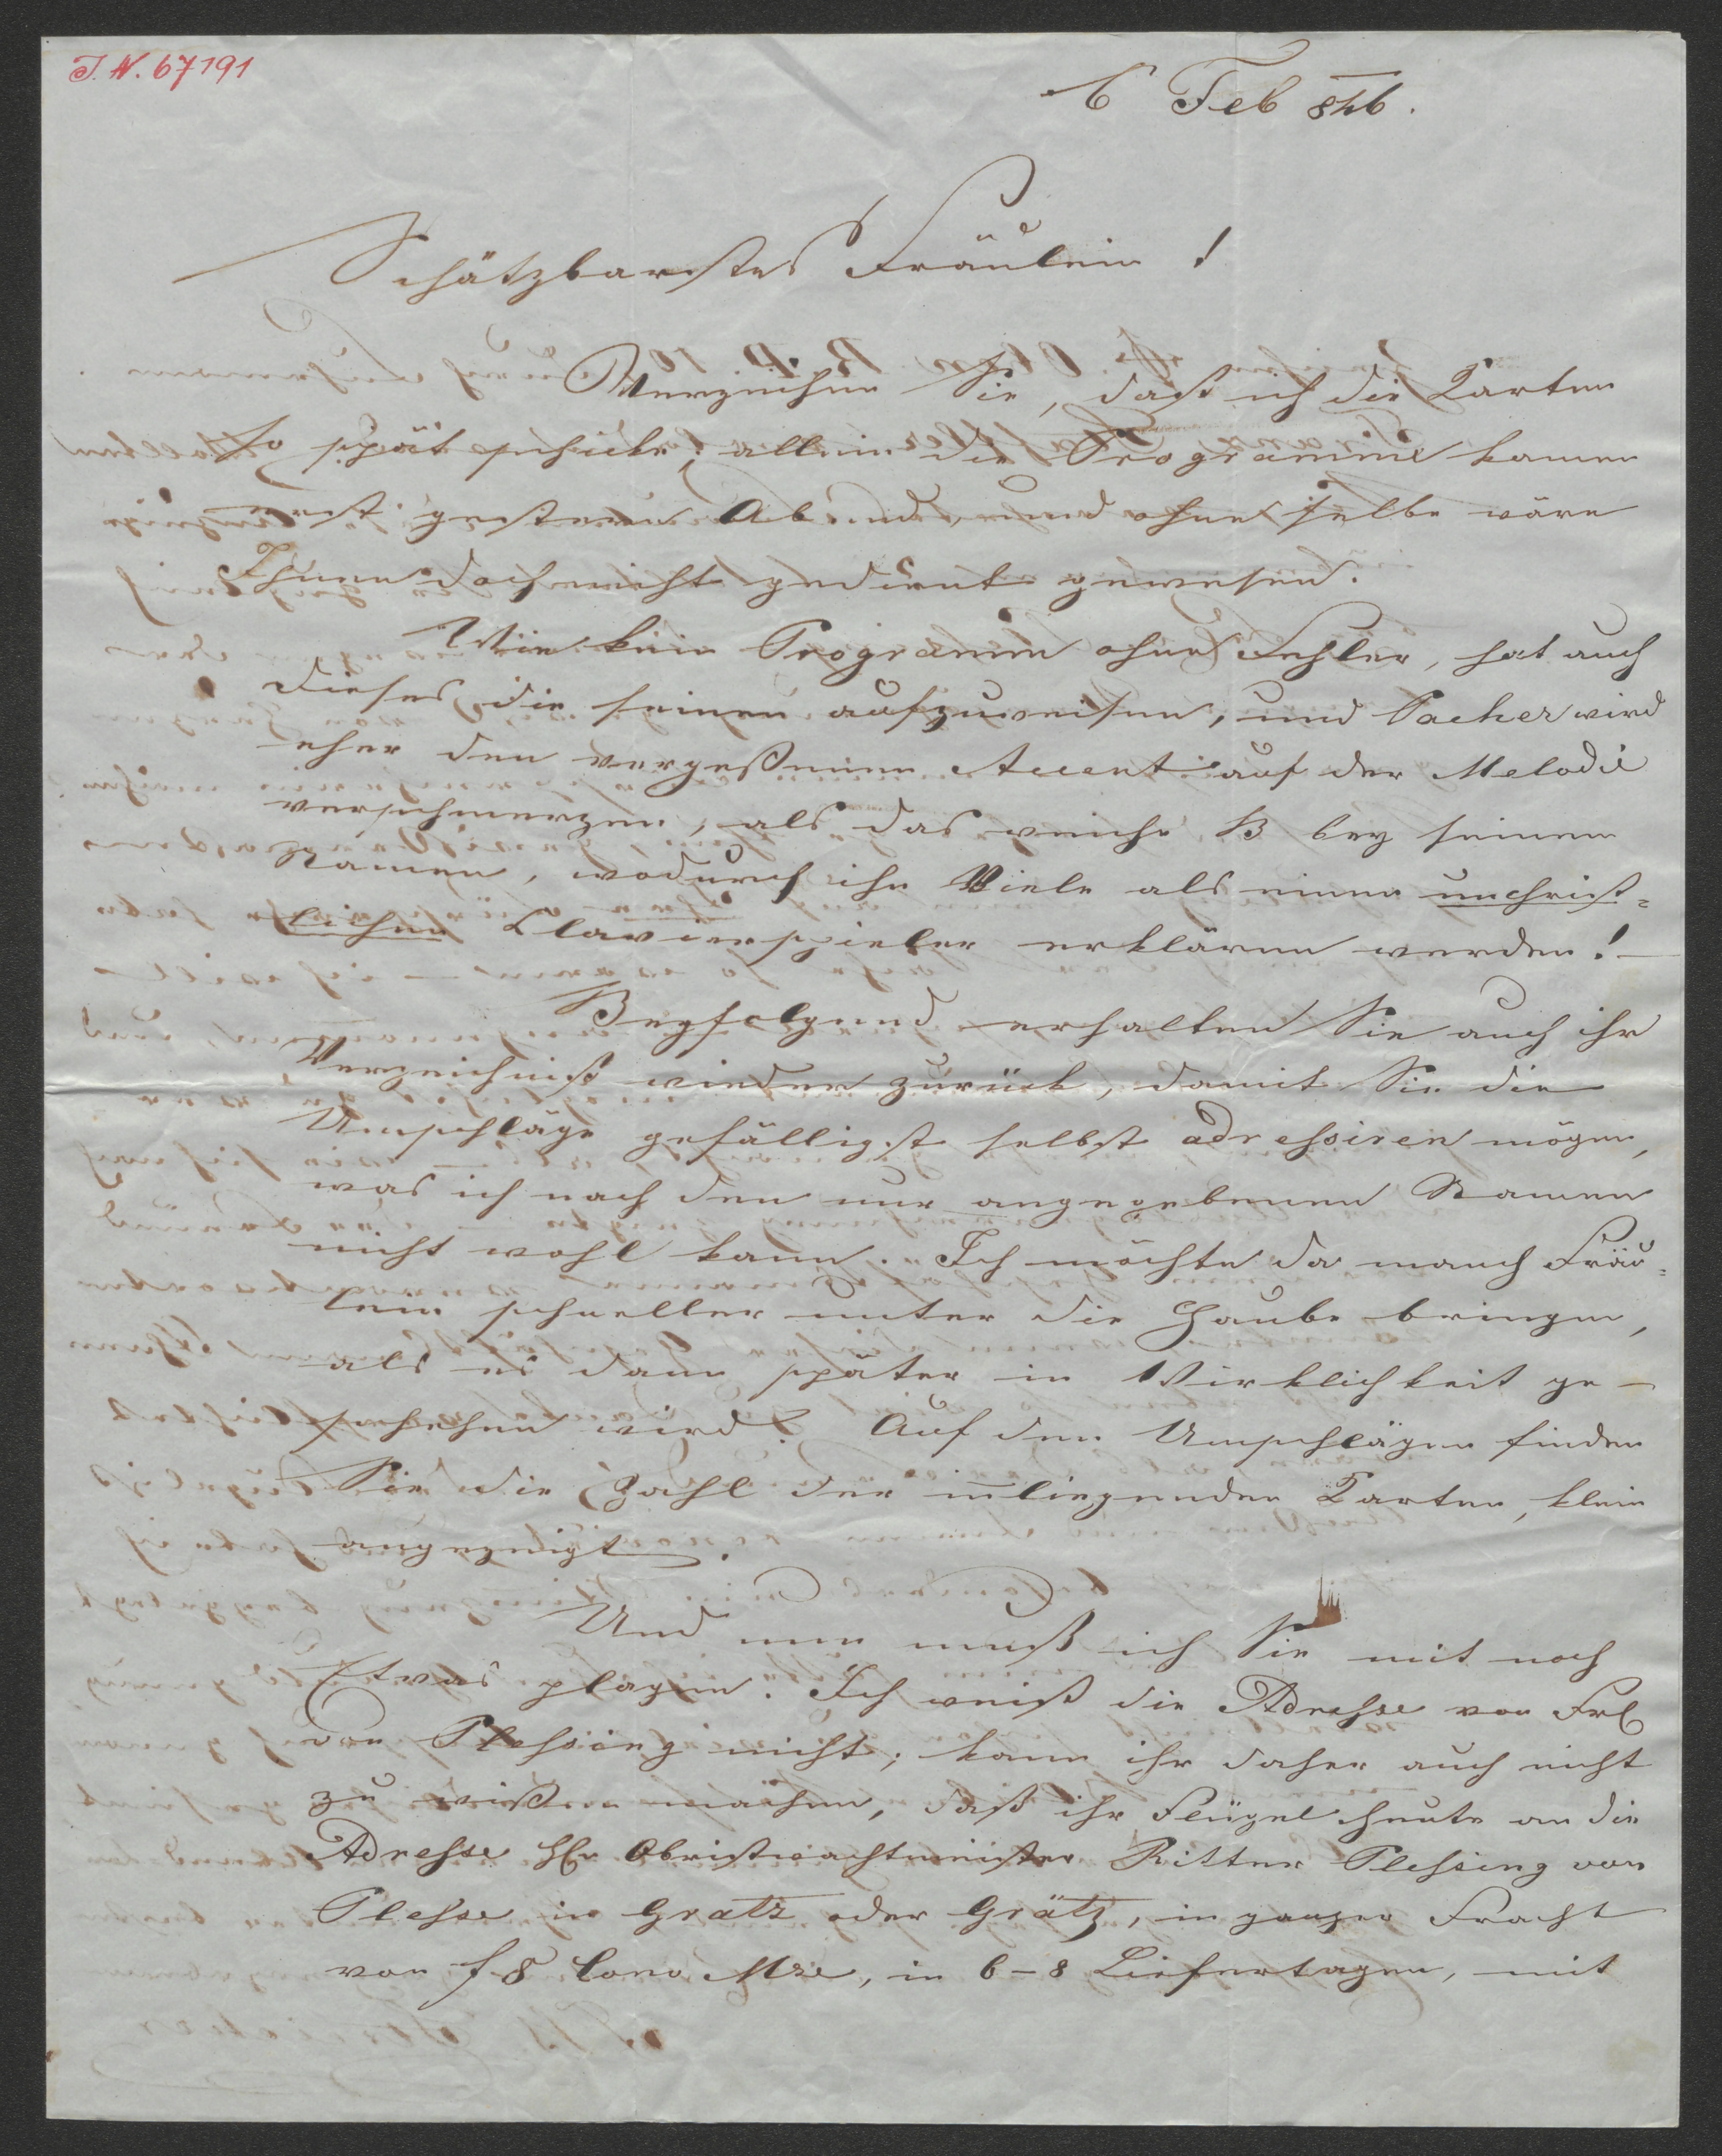 I. N. 67191
6 Feb 846.
Schätzbarstes Fräulein!
Verzeihen Sie, daß ich die Karten
so spät schicke; allein die Programme kamen
erst gestern Abend, und ohne selbe wäre
Ihnen doch nicht gedient gewesen.
Wie kein Programm ohne Fehler, hat auch
dieses die seinen aufzuweisen, und Pacher wird
eher den vergeßenen Accent auf der Melodie
verschmerzen, als das weiche B bey seinem
Namen, wodurch ihn Viele als einen unchrist=
lichen Clavierspieler erklären werden! –
Beyfolgend erhalten Sie auch ihr
Verzeichniß wieder zurück, damit Sie die
Umschläge gefälligst selbst adressiren mögen,
was ich nach den nur angegebenen Namen
nicht wohl kann. Ich möchte da manch Fräu=
lein schneller unter die Haube bringen,
als es dann später in Wirklichkeit ge–
schehen wird. Auf den Umschlägen finden
Sie die Zahl der innliegenden Karten, klein
angezeigt.
Und nun muß ich Sie mit noch
Etwas plagen. Ich weiß die Adresse von Frl
von Plessing nicht, kann ihr daher auch nicht
zu wißen machen, daß ihr Flügel heute an die
Adresse Hr Obristwachtmeister Ritter Plessing von
Plesse in Gratz oder Grätz, in ganzer Fracht
von f 8 Conv Mze, in 6–8 Liefertagen, mit